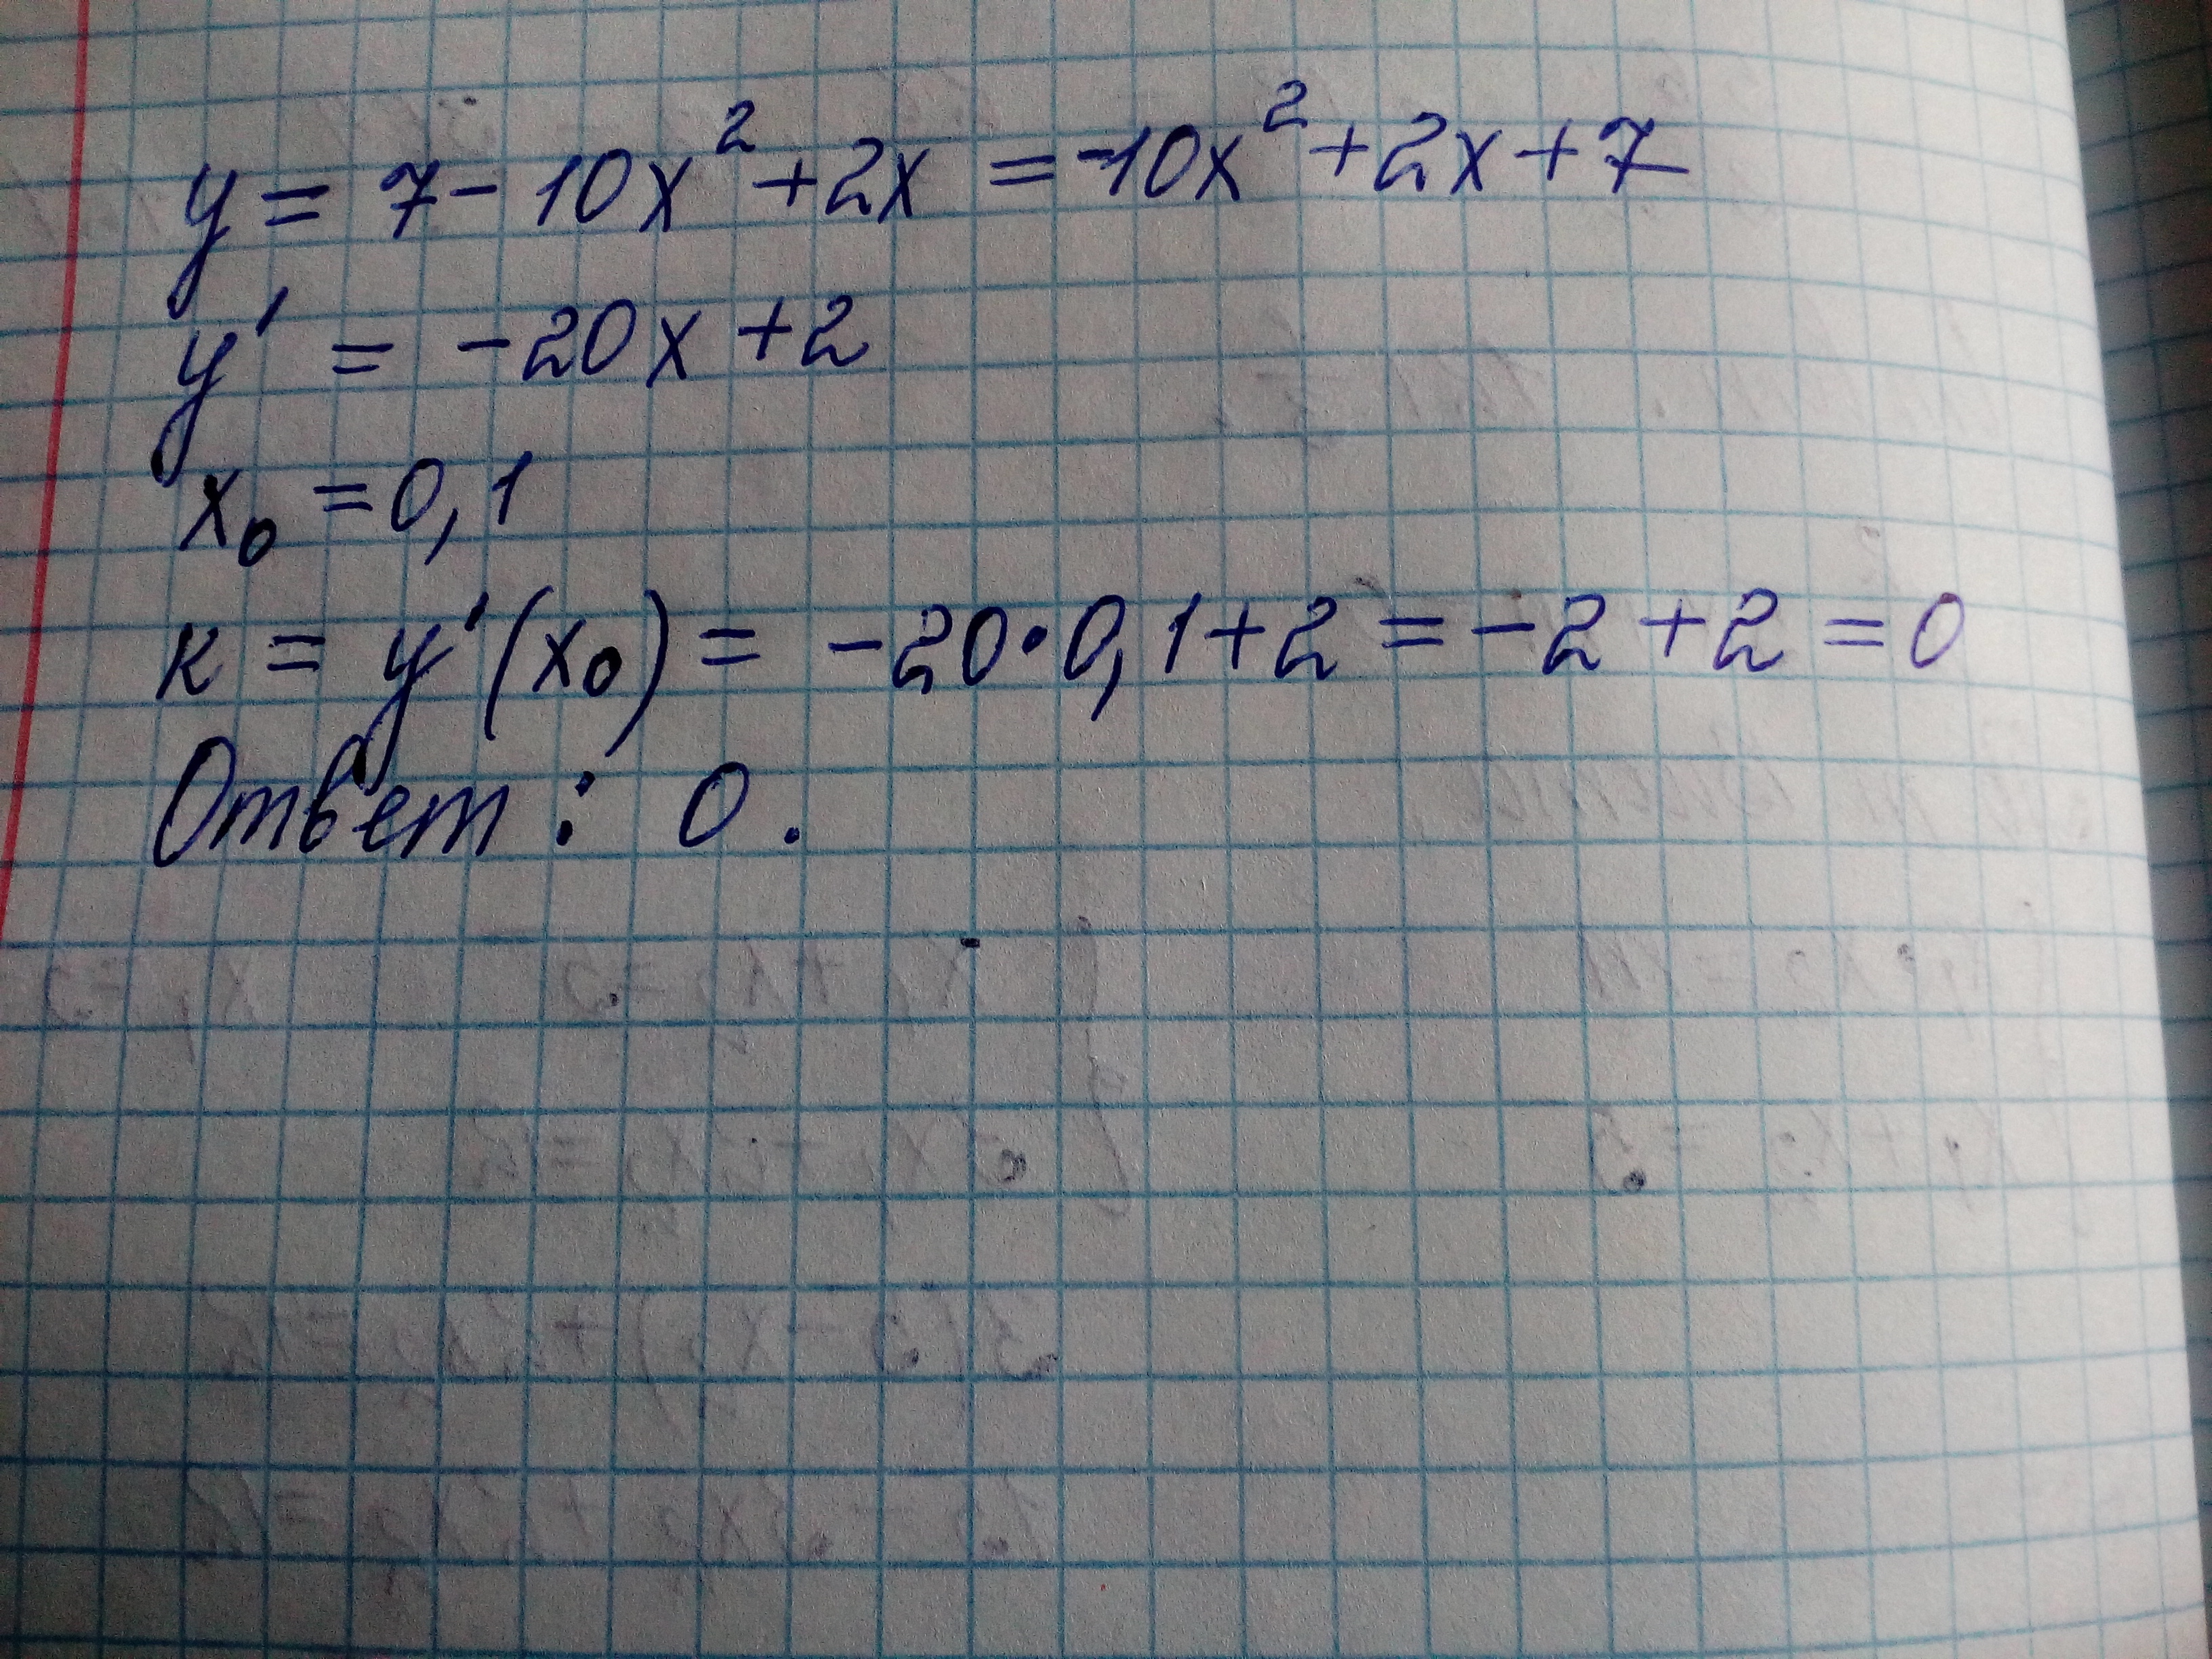 y = 7 - 10x² + 2x = -10x² + 2x + 7
y' = -20x + 2
x₀ = 0,1
к = y'(x₀) = -20·0,1 + 2 = -2 + 2 = 0
Ответ: 0.